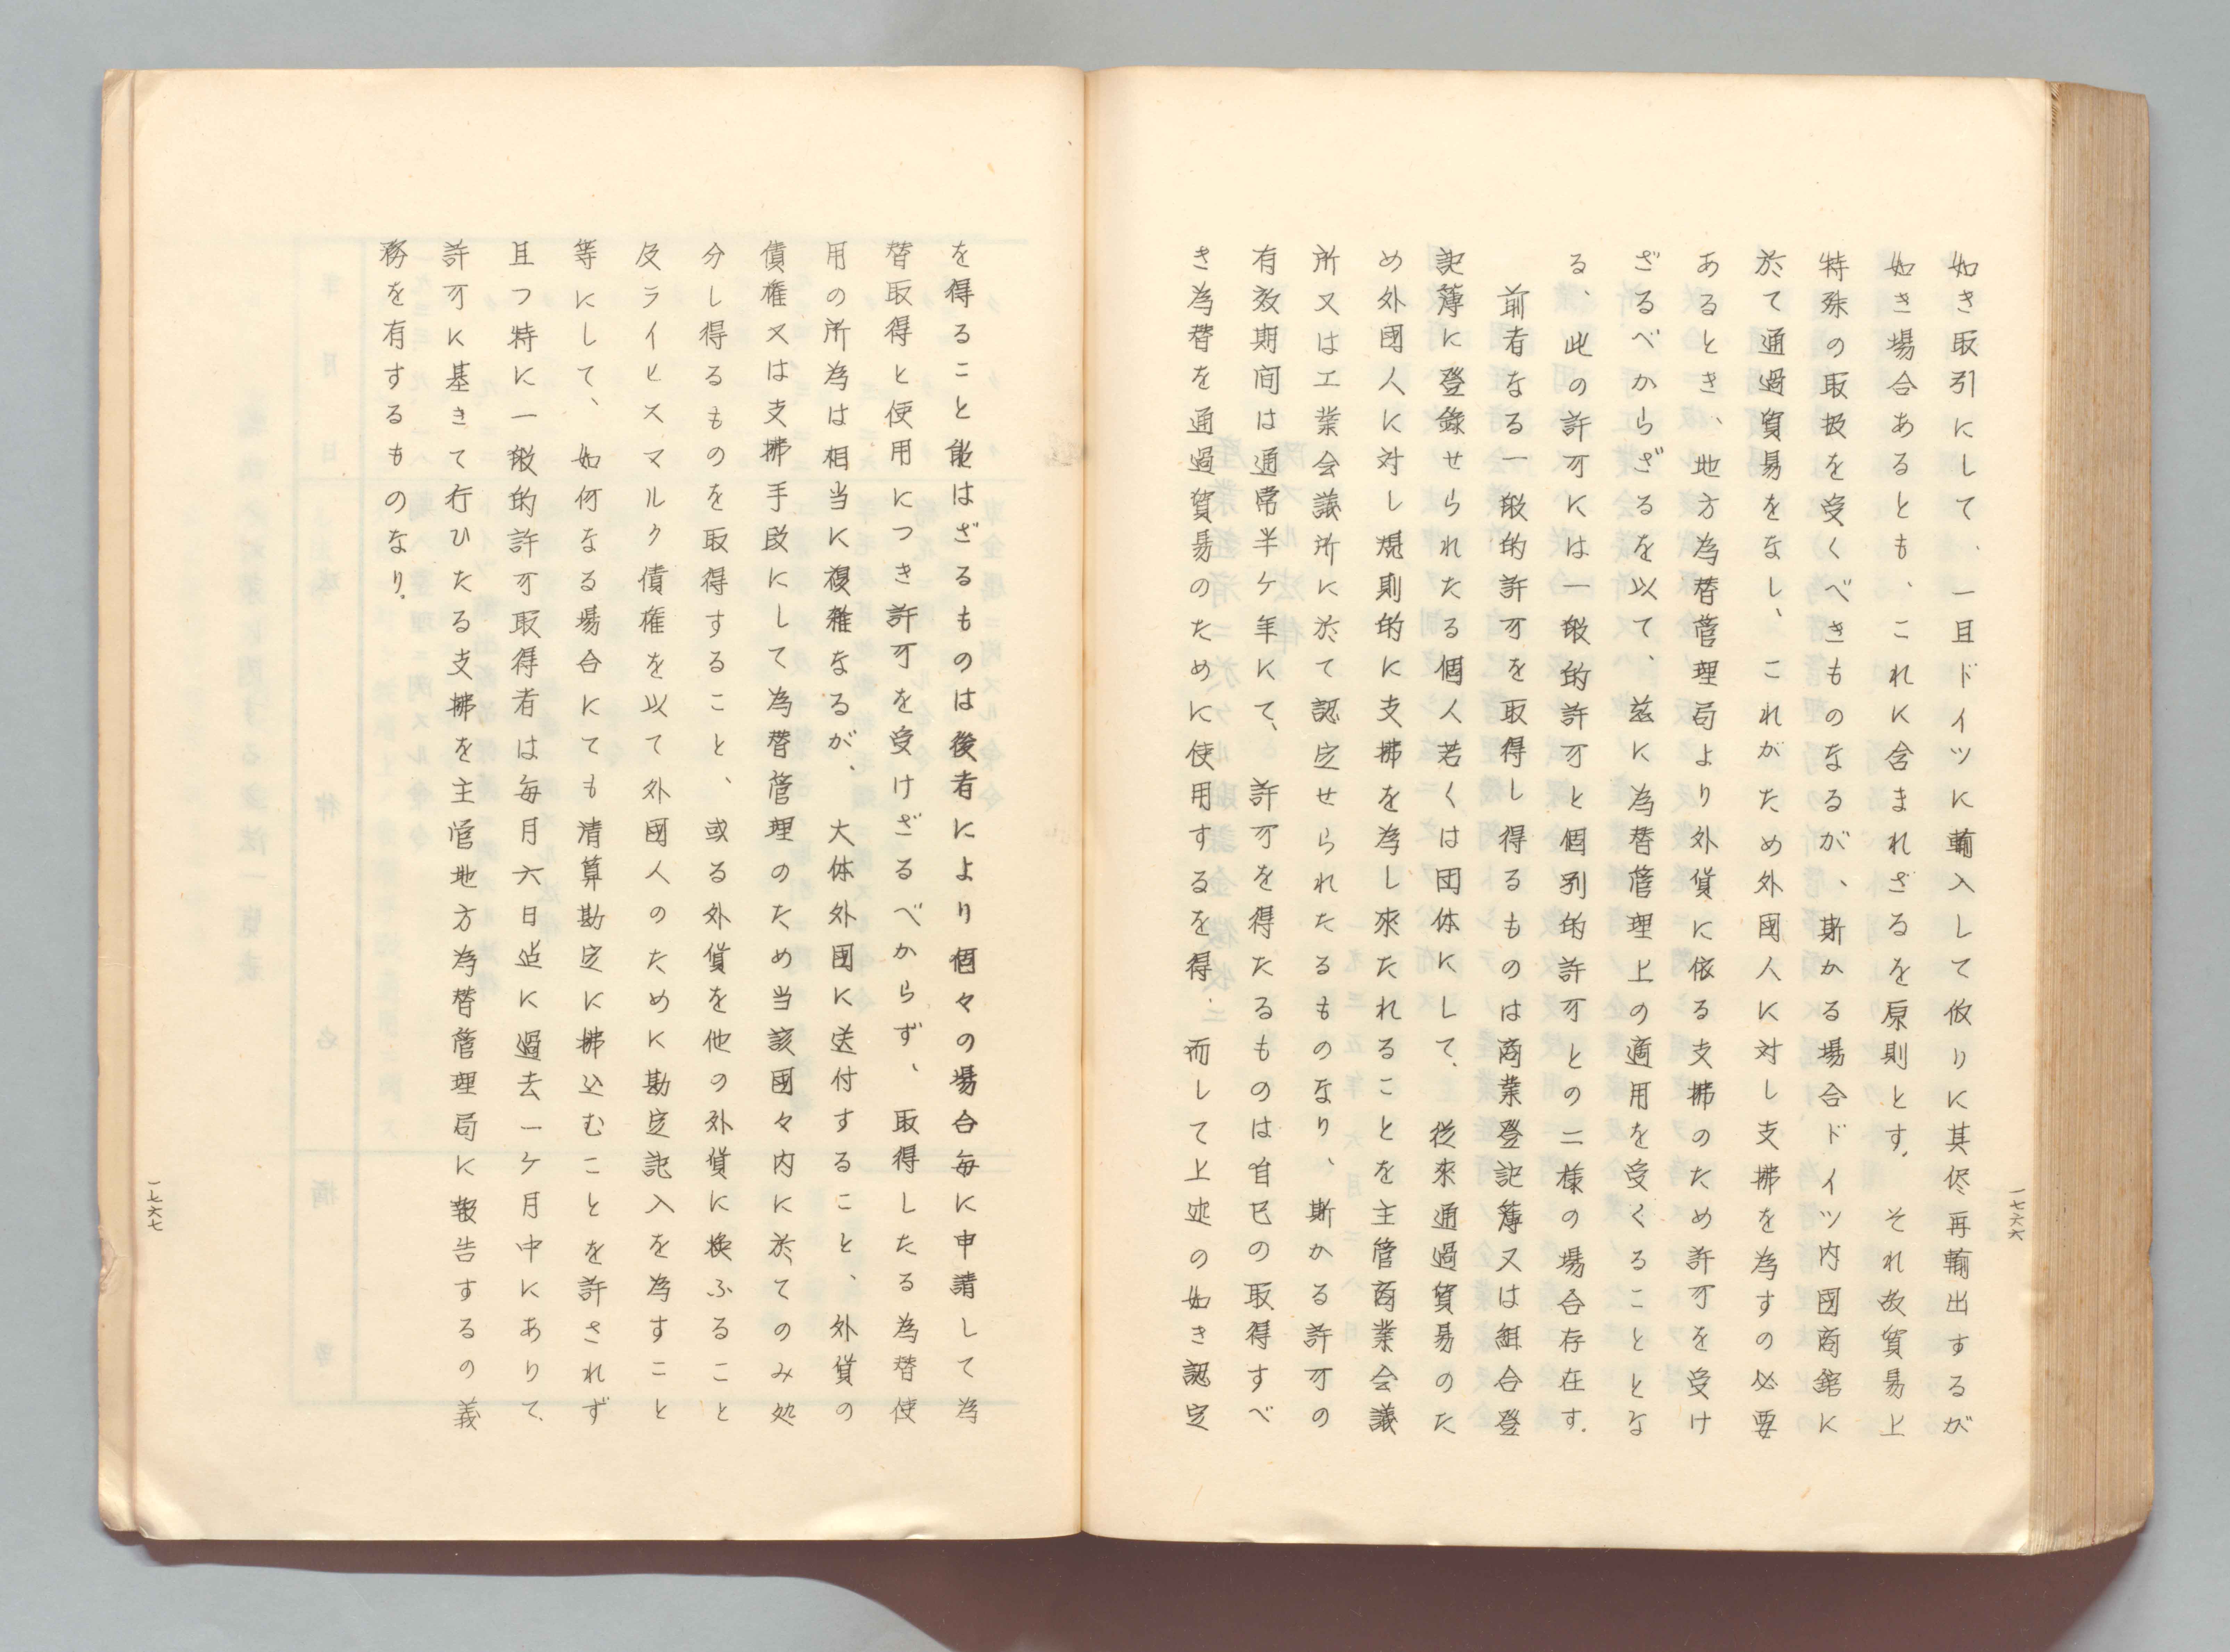 如き取引にして、一旦ドイツに輸入して後りに其侭再輸出するが
如き場合あるとも、これに含まれざるを原則とす。それ故貿易上
特殊の取扱を受くべきものなるが、斯かる場合ドイツ内国商館に
於て通過貿易をなし、これがため外國人に対し支拂を為すの必要
あるとき、地方為替管理局より外貨に依る支拂のため許可を受け
ざるべからざるを以て、茲に為替管理上の適用を受くることとな
る、此の許可には一般的許可と個別的許可との二様の場合存在す.
前者なる一般的許可を取得し得るものは商業登記簿又は組合登
記簿に登錄せられたる個人若くは団体にして、従來通過貿易のた
め外國人に対し規則的に支拂を為し來たれることを主管商業会議
所又は工業会議所に於て認定せられたるものなり、斯かる許可の
有效期间は通常半ケ年にて、許可を得たるものは自己の取得すべ
き為替を通過貿易のために使用するを得.而して上述の如き認定
一七六六
を得ること能はざるものは後者により個々の場合毎に申請して為
替取得と使用につき許可を受けざるべからず、取得したる為替使
用の所為は相当に複雑なるが、大体外國に送付すること、外貨の
債権又は支拂手段にして為替管理のため当該國々内に於てのみ処
分し得るものを取得すること、或る外貨を他の外貨に換ふること
及ライヒスマルク債権を以て外國人のために勘定記入を為すこと
等にして、如何なる場合にても清算勘定に拂込むことを許されず
且つ特に一般的許可取得者は毎月六日迄に過去一ケ月中にありて、
許可に基きて行ひたる支拂を主管地方為替管理局に報告するの義
務を有するものなり.
一七六七